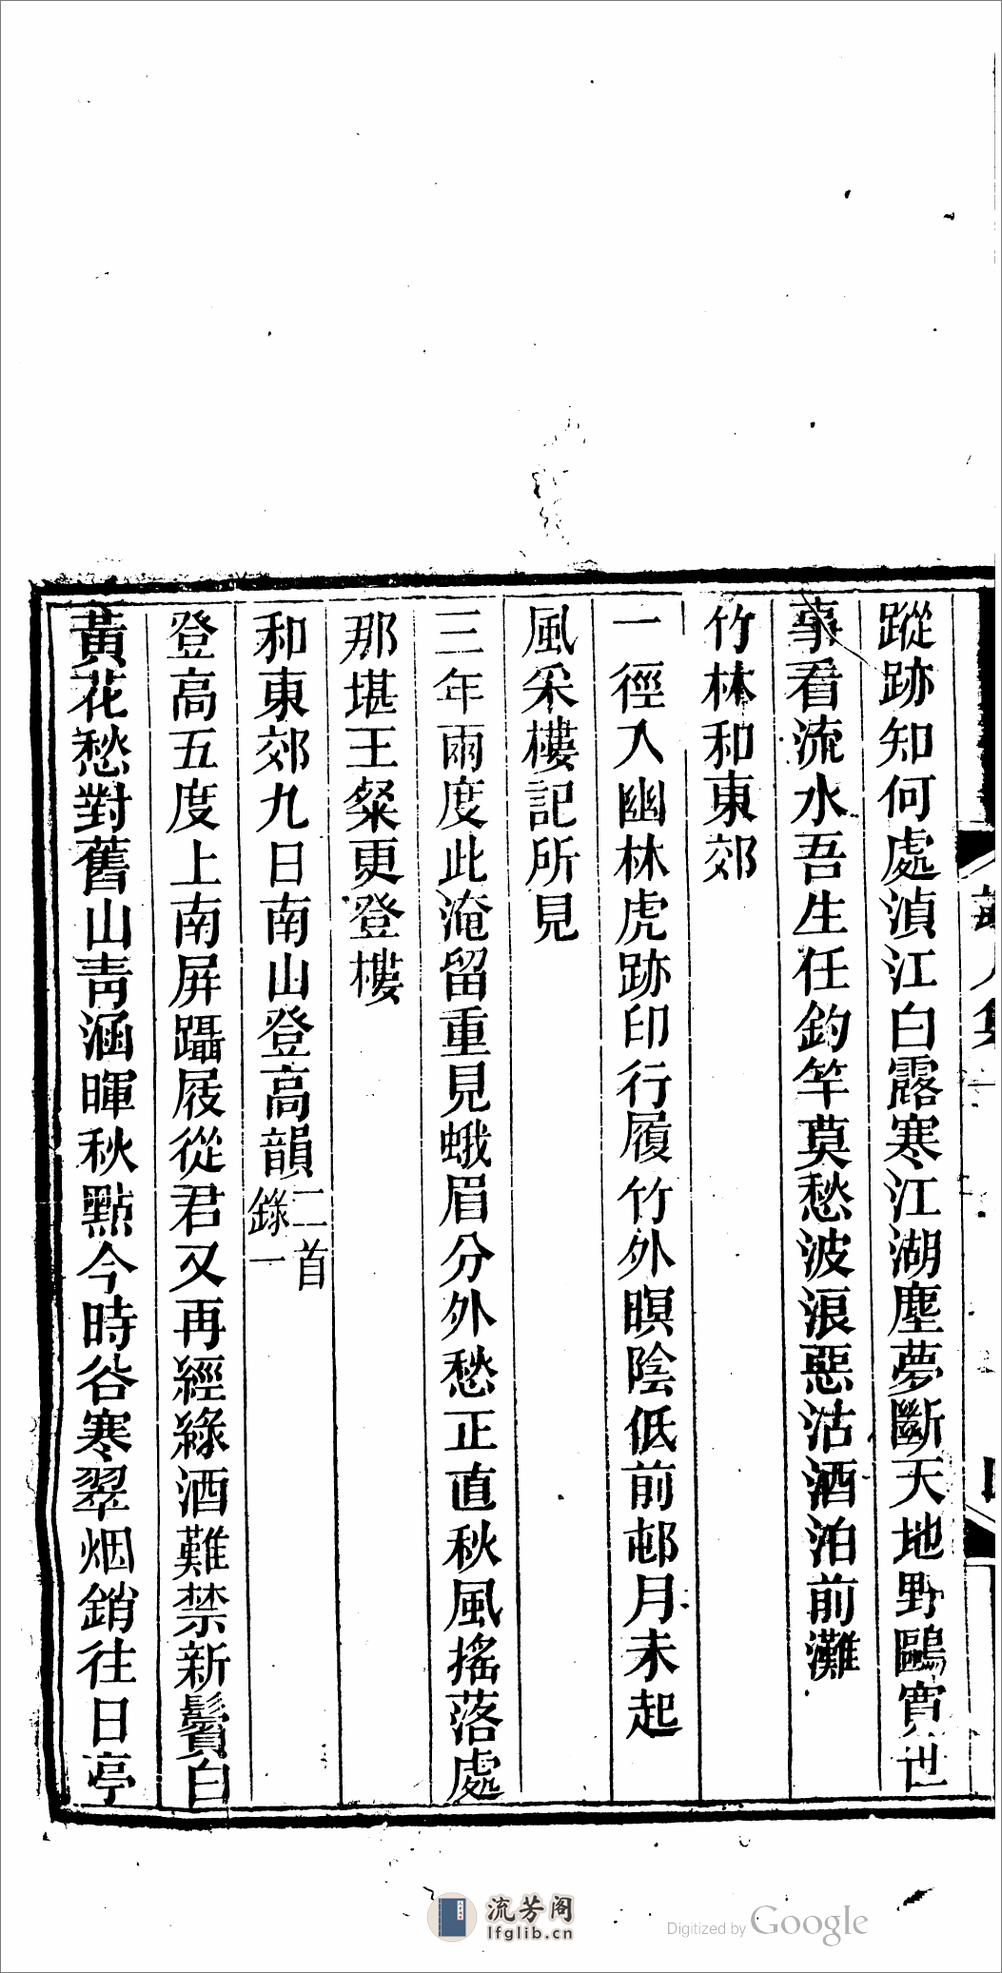 蹤跡知何處湞江白露寒江湖塵夢斷天地野鷗寬世
事看流水吾生任釣竿莫愁波浪惡沽酒泊前灘
竹林和東郊
一徑入幽林虎跡印行履竹外暝陰低前邨月未起
風采樓記所見
三年兩度此淹留重見蛾眉分外愁正直秋風搖落處
那堪王粲更登樓
和東郊九日南山登高韻二首錄一
登高五度上南屏躡屐從君又再經綠酒難禁新鬢白
黃花愁對舊山青涵暉秋點今時谷寒翠烟銷往日亭
流芳阁
lfglib.cn
Digitized by Google